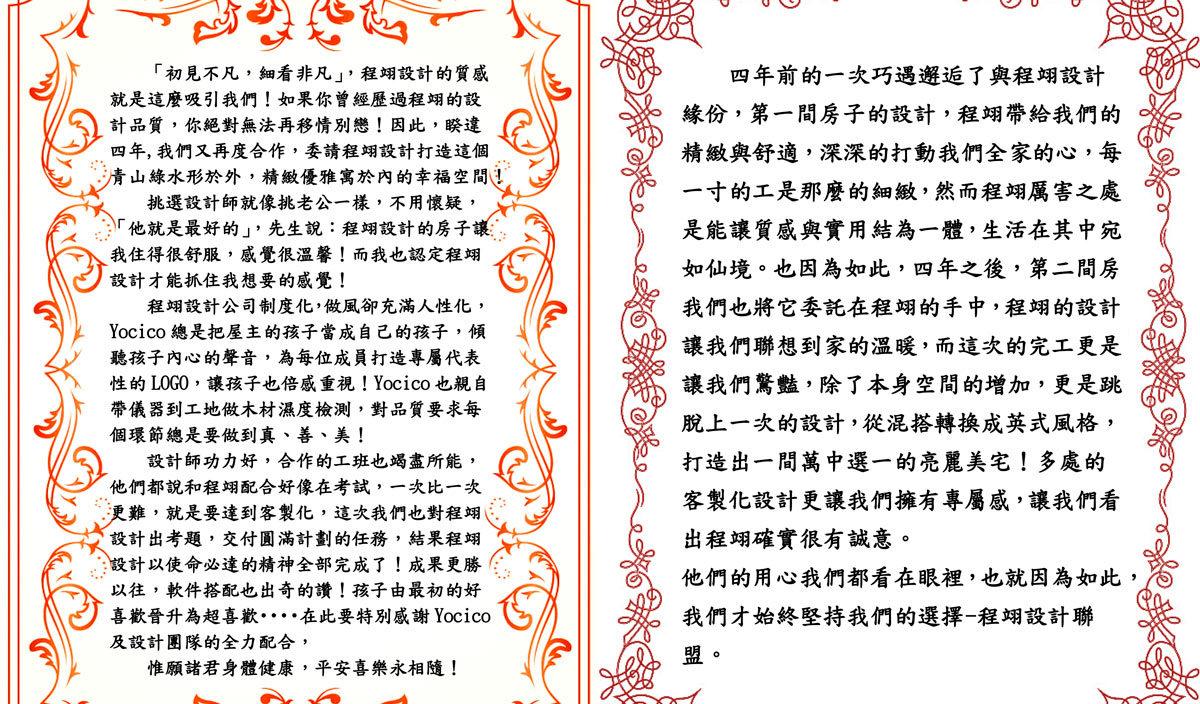 「初見不凡，細看非凡」，程翊設計的質感
就是這麼吸引我們！如果你曾經歷過程翊的設
計品質，你絕對無法再移情別戀！因此，睽違
四年,我們又再度合作，委請程翊設計打造這個
青山綠水形於外，精緻優雅寓於內的幸福空間！
挑選設計師就像挑老公一樣，不用懷疑，
「他就是最好的」，先生說：程翊設計的房子讓
我住得很舒服，感覺很溫馨！而我也認定程翊
設計才能抓住我想要的感覺！
程翊設計公司制度化,做風卻充滿人性化，
Yocico 總是把屋主的孩子當成自己的孩子，傾
聽孩子內心的聲音，為每位成員打造專屬代表
性的 LOGO，讓孩子也倍感重視！Yocico 也親自
帶儀器到工地做木材濕度檢測，對品質要求每
個環節總是要做到真、善、美！
設計師功力好，合作的工班也竭盡所能，
他們都說和程翊配合好像在考試，一次比一次
更難，就是要達到客製化，這次我們也對程翊
設計出考題，交付圓滿計劃的任務，結果程翊
設計以使命必達的精神全部完成了！成果更勝
以往，軟件搭配也出奇的讚！孩子由最初的好
喜歡晉升為超喜歡‧‧‧‧在此要特別感謝 Yocico
及設計團隊的全力配合，
惟願諸君身體健康，平安喜樂永相隨！
四年前的一次巧遇邂逅了與程翊設計
緣份，第一間房子的設計，程翊帶給我們的
精緻與舒適，深深的打動我們全家的心，每
一寸的工是那麼的細緻，然而程翊厲害之處
是能讓質感與實用結為一體，生活在其中宛
如仙境。也因為如此，四年之後，第二間房
我們也將它委託在程翊的手中，程翊的設計
讓我們聯想到家的溫暖，而這次的完工更是
讓我們驚豔，除了本身空間的增加，更是跳
脫上一次的設計，從混搭轉換成英式風格，
打造出一間萬中選一的亮麗美宅！多處的
客製化設計更讓我們擁有專屬感，讓我們看
出程翊確實很有誠意。
他們的用心我們都看在眼裡，也就因為如此，
我們才始終堅持我們的選擇-程翊設計聯
盟。